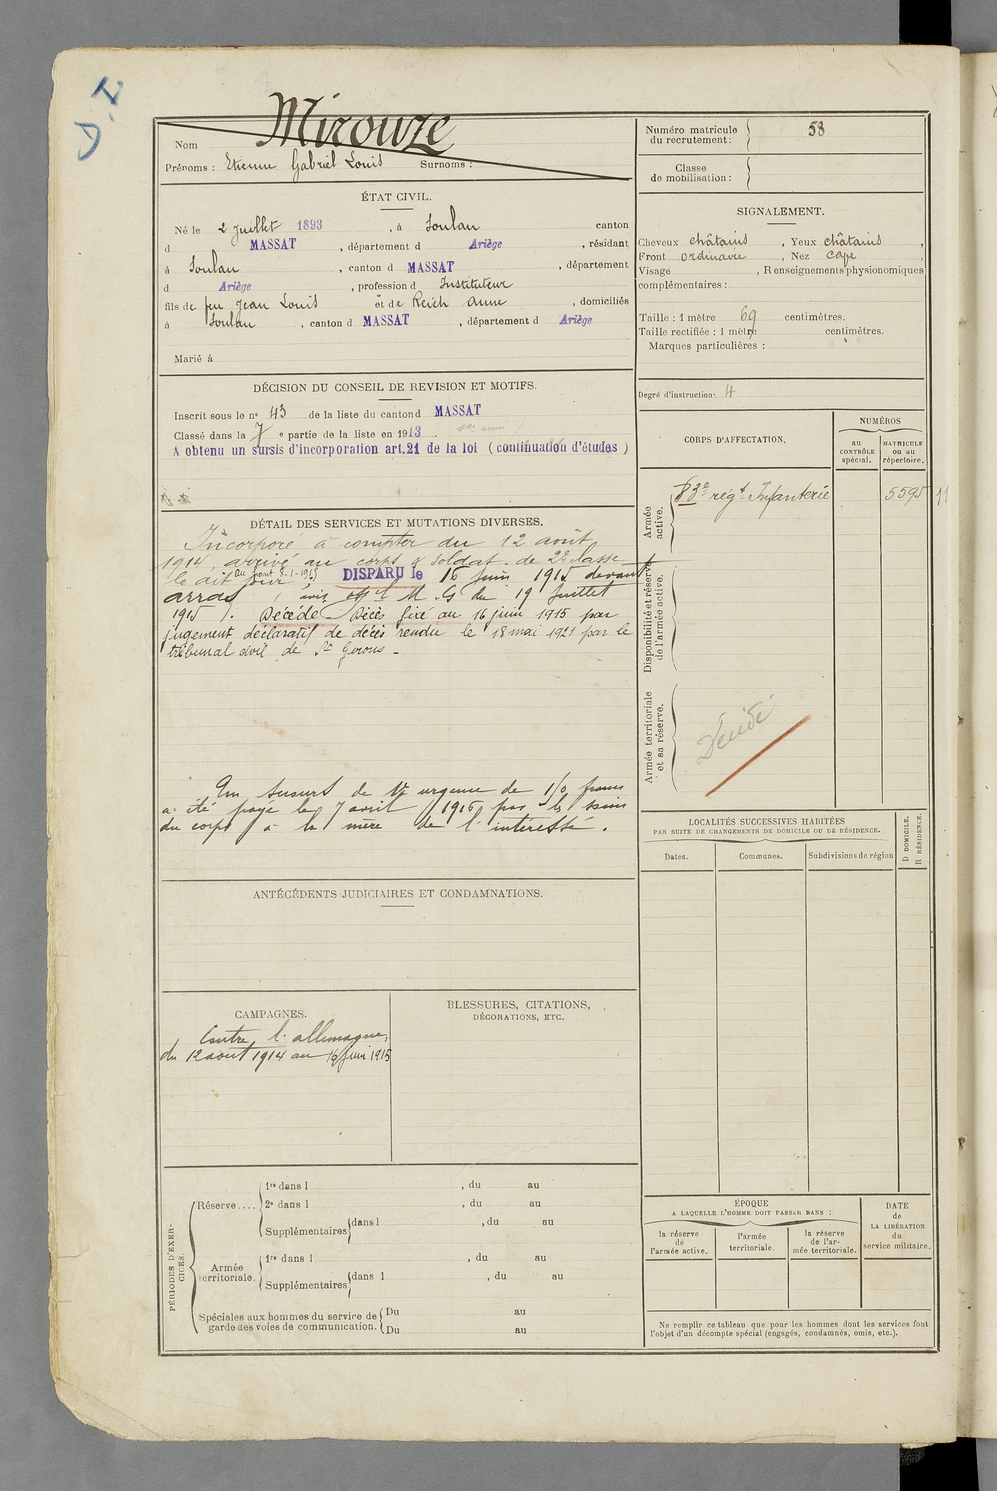 D.N
Mirouze
Nom
Prénoms : Etienne Gabriel Louis Surnoms :
Numéro matricule du recrutement : 58
Classe de mobilisation :
ÉTAT CIVIL.
Né le 2 Juillet 1893, à Soulan canton
d MASSAT, département d Ariège, résidant
à Soulan, canton d MASSAT, département
d Ariège, profession d Instituteur
fils de feu Jean Louis et de Reich Anne, domiciliés
à Soulan, canton d MASSAT, département d Ariège
Marié à
SIGNALEMENT.
Cheveux châtains, Yeux châtains,
Front ordinaire, Nez cave,
Visage , Renseignements physionomiques
complémentaires :
Taille : 1 mètre 69 centimètres.
Taille rectifiée : 1 mètre centimètres.
Marques particulières :
Degré d'instruction : 4
DÉCISION DU CONSEIL DE REVISION ET MOTIFS.
Inscrit sous le n° 43 de la liste du canton d MASSAT
Classé dans la 7 e partie de la liste en 1913.
A obtenu un sursis d'incorporation art.21 de la loi (continuation d'études)
DÉTAIL DES SERVICES ET MUTATIONS DIVERSES.
Incorporé à compter du 12 août
1914, arrivé au corps & soldat de 2e classe
le dit jour. DISPARU le 16 juin 1915 devant
arras (avis M. G du 19 Juillet
1915). Décédé Décès fixé au 16 juin 1915 par
jugement déclaratif de décès rendu le 18 mai 1921 par le
tribunal civil de St Girons -
Un secours de 1re urgence de 150 francs
a été payé le 7 avril 1916 par les soins
du corps à la mère de l'intéressé.
CORPS D'AFFECTATION.
NUMÉROS
au CONTRÔLE spécial.
MATRICULE ou au répertoire.
Armée active.
83e régt Infanterie 5595 11
Disponibilité et réserve de l'armée active.
Armée territoriale et sa réserve.
Décédé
LOCALITÉS SUCCESSIVES HABITÉES
PAR SUITE DE CHANGEMENTS DE DOMICILE OU DE RÉSIDENCE.
D DOMICILE.
R RÉSIDENCE.
Dates. Communes. Subdivisions de région
ANTÉCÉDENTS JUDICIAIRES ET CONDAMNATIONS.
CAMPAGNES.
Contre l'allemagne,
du 12 août 1914 au 16 juin 1915
BLESSURES, CITATIONS,
DÉCORATIONS, ETC.
PÉRIODES D'EXERCICES.
Réserve....
1re dans l , du au
2e dans l , du au
Supplémentaires dans l , du au
Armée territoriale.
1re dans l , du au
Supplémentaires dans l , du au
Spéciales aux hommes du service de
garde des voies de communication.
Du au
Du au
ÉPOQUE
A LAQUELLE L'HOMME DOIT PASSER DANS :
la réserve de l'armée active.
l'armée territoriale.
la réserve de l'armée territoriale.
DATE de LA LIBÉRATION du service militaire.
Ne remplir ce tableau que pour les hommes dont les services font
l'objet d'un décompte spécial (engagés, condamnés, omis, etc.).